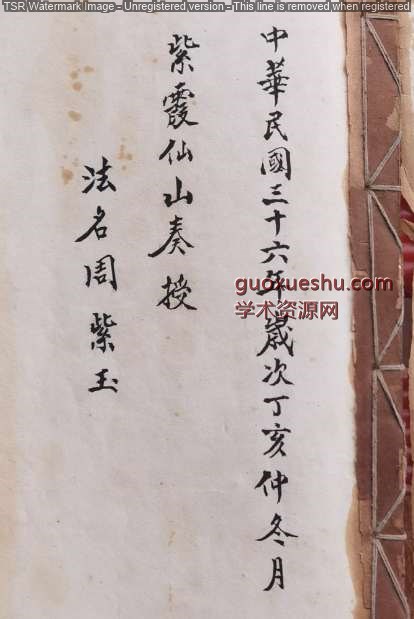 TSR Watermark Image - Unregistered version - This line is removed when registered
中華民國三十六年歲次丁亥仲冬月
紫霞仙山奏授
法名周紫玉
guoxueshu.com
学术资源网